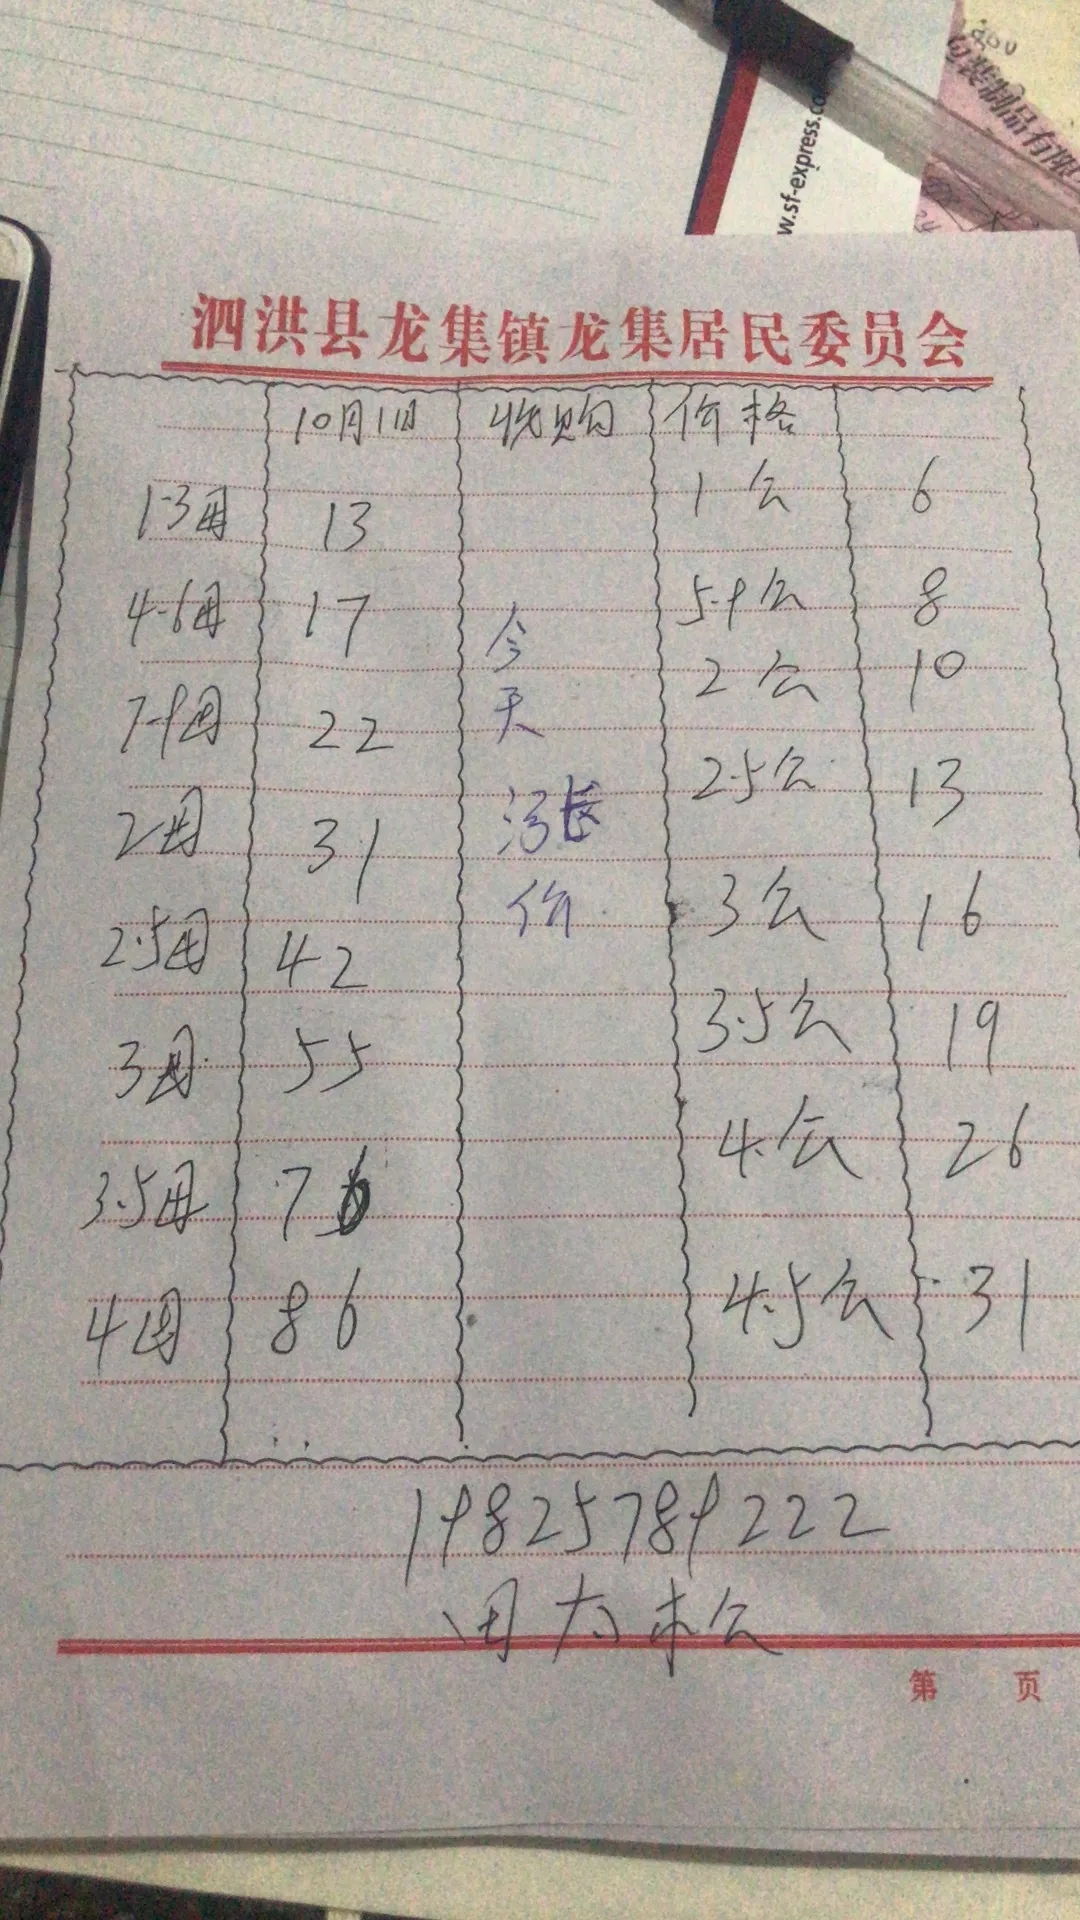 w.sf-express.co
包装制品有限
泗洪县龙集镇龙集居民委员会
10月1日 收购 价格
1-3母 13 1公 6
4-6母 17 5-9公 8
7-9母 22 2公 10
2母 31 2.5公 13
2.5母 42 3公 16
3母 55 3.5公 19
3.5母 76 4公 26
4母 86 4.5公 31
今天涨价
19825789222
第 页